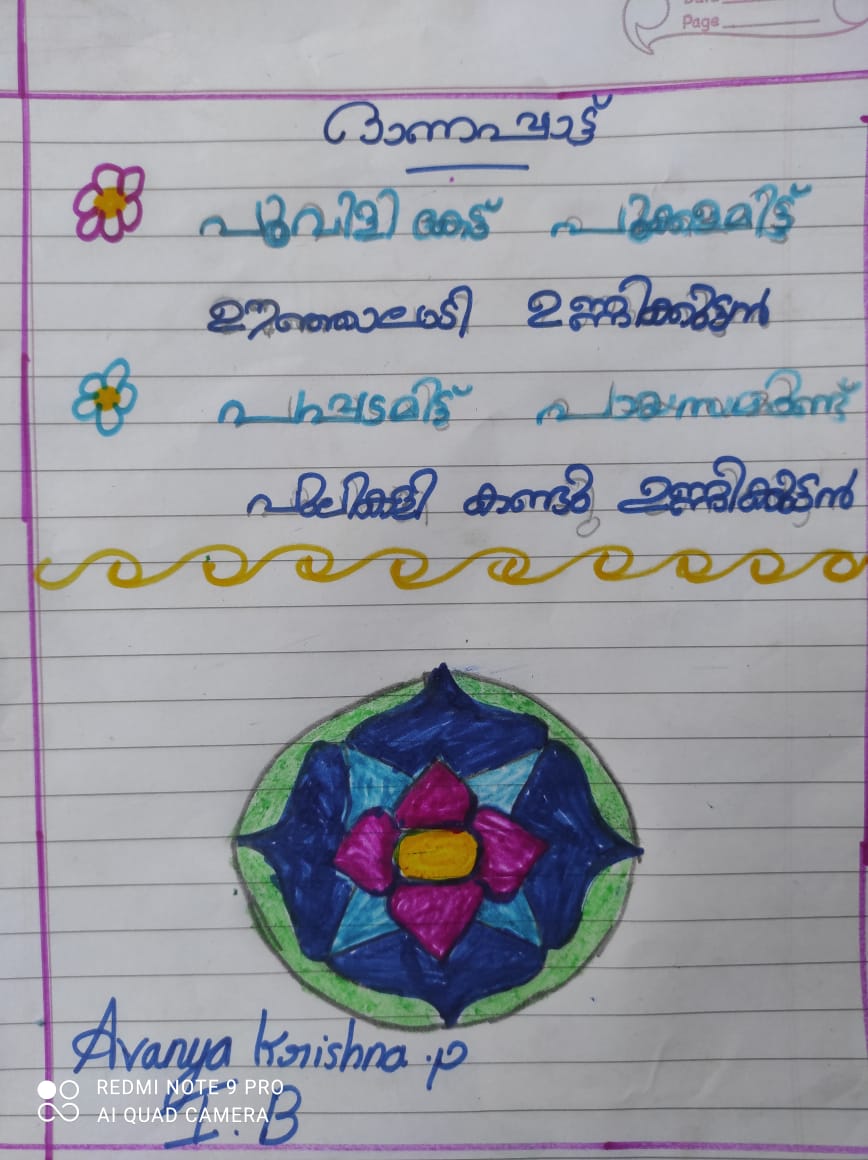 Page
ഓണപ്പാട്ട്
പൂവിളി കേട്ട് പൂക്കളമിട്ട്
ഊഞ്ഞാലാടി ഉണ്ണിക്കുട്ടൻ
പപ്പടമിട്ട് പായസമുണ്ട്
പുലിക്കളി കണ്ടു ഉണ്ണിക്കുട്ടൻ
Avanya Krishna .p
I. B
REDMI NOTE 9 PRO
AI QUAD CAMERA